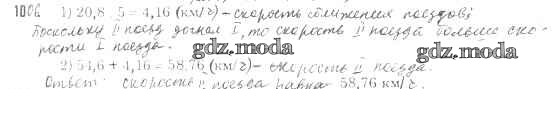 1006. 1) 20,8 : 5 = 4,16 (км/ч) – скорость сближения поездов;
Поскольку II поезд догнал I, то скорость II поезда больше ско-
рости I поезда.
gdz.moda
gdz.moda
2) 54,6 + 4,16 = 58,76 (км/ч) – скорость II поезда.
Ответ: скорость II поезда равна 58,76 км/ч.